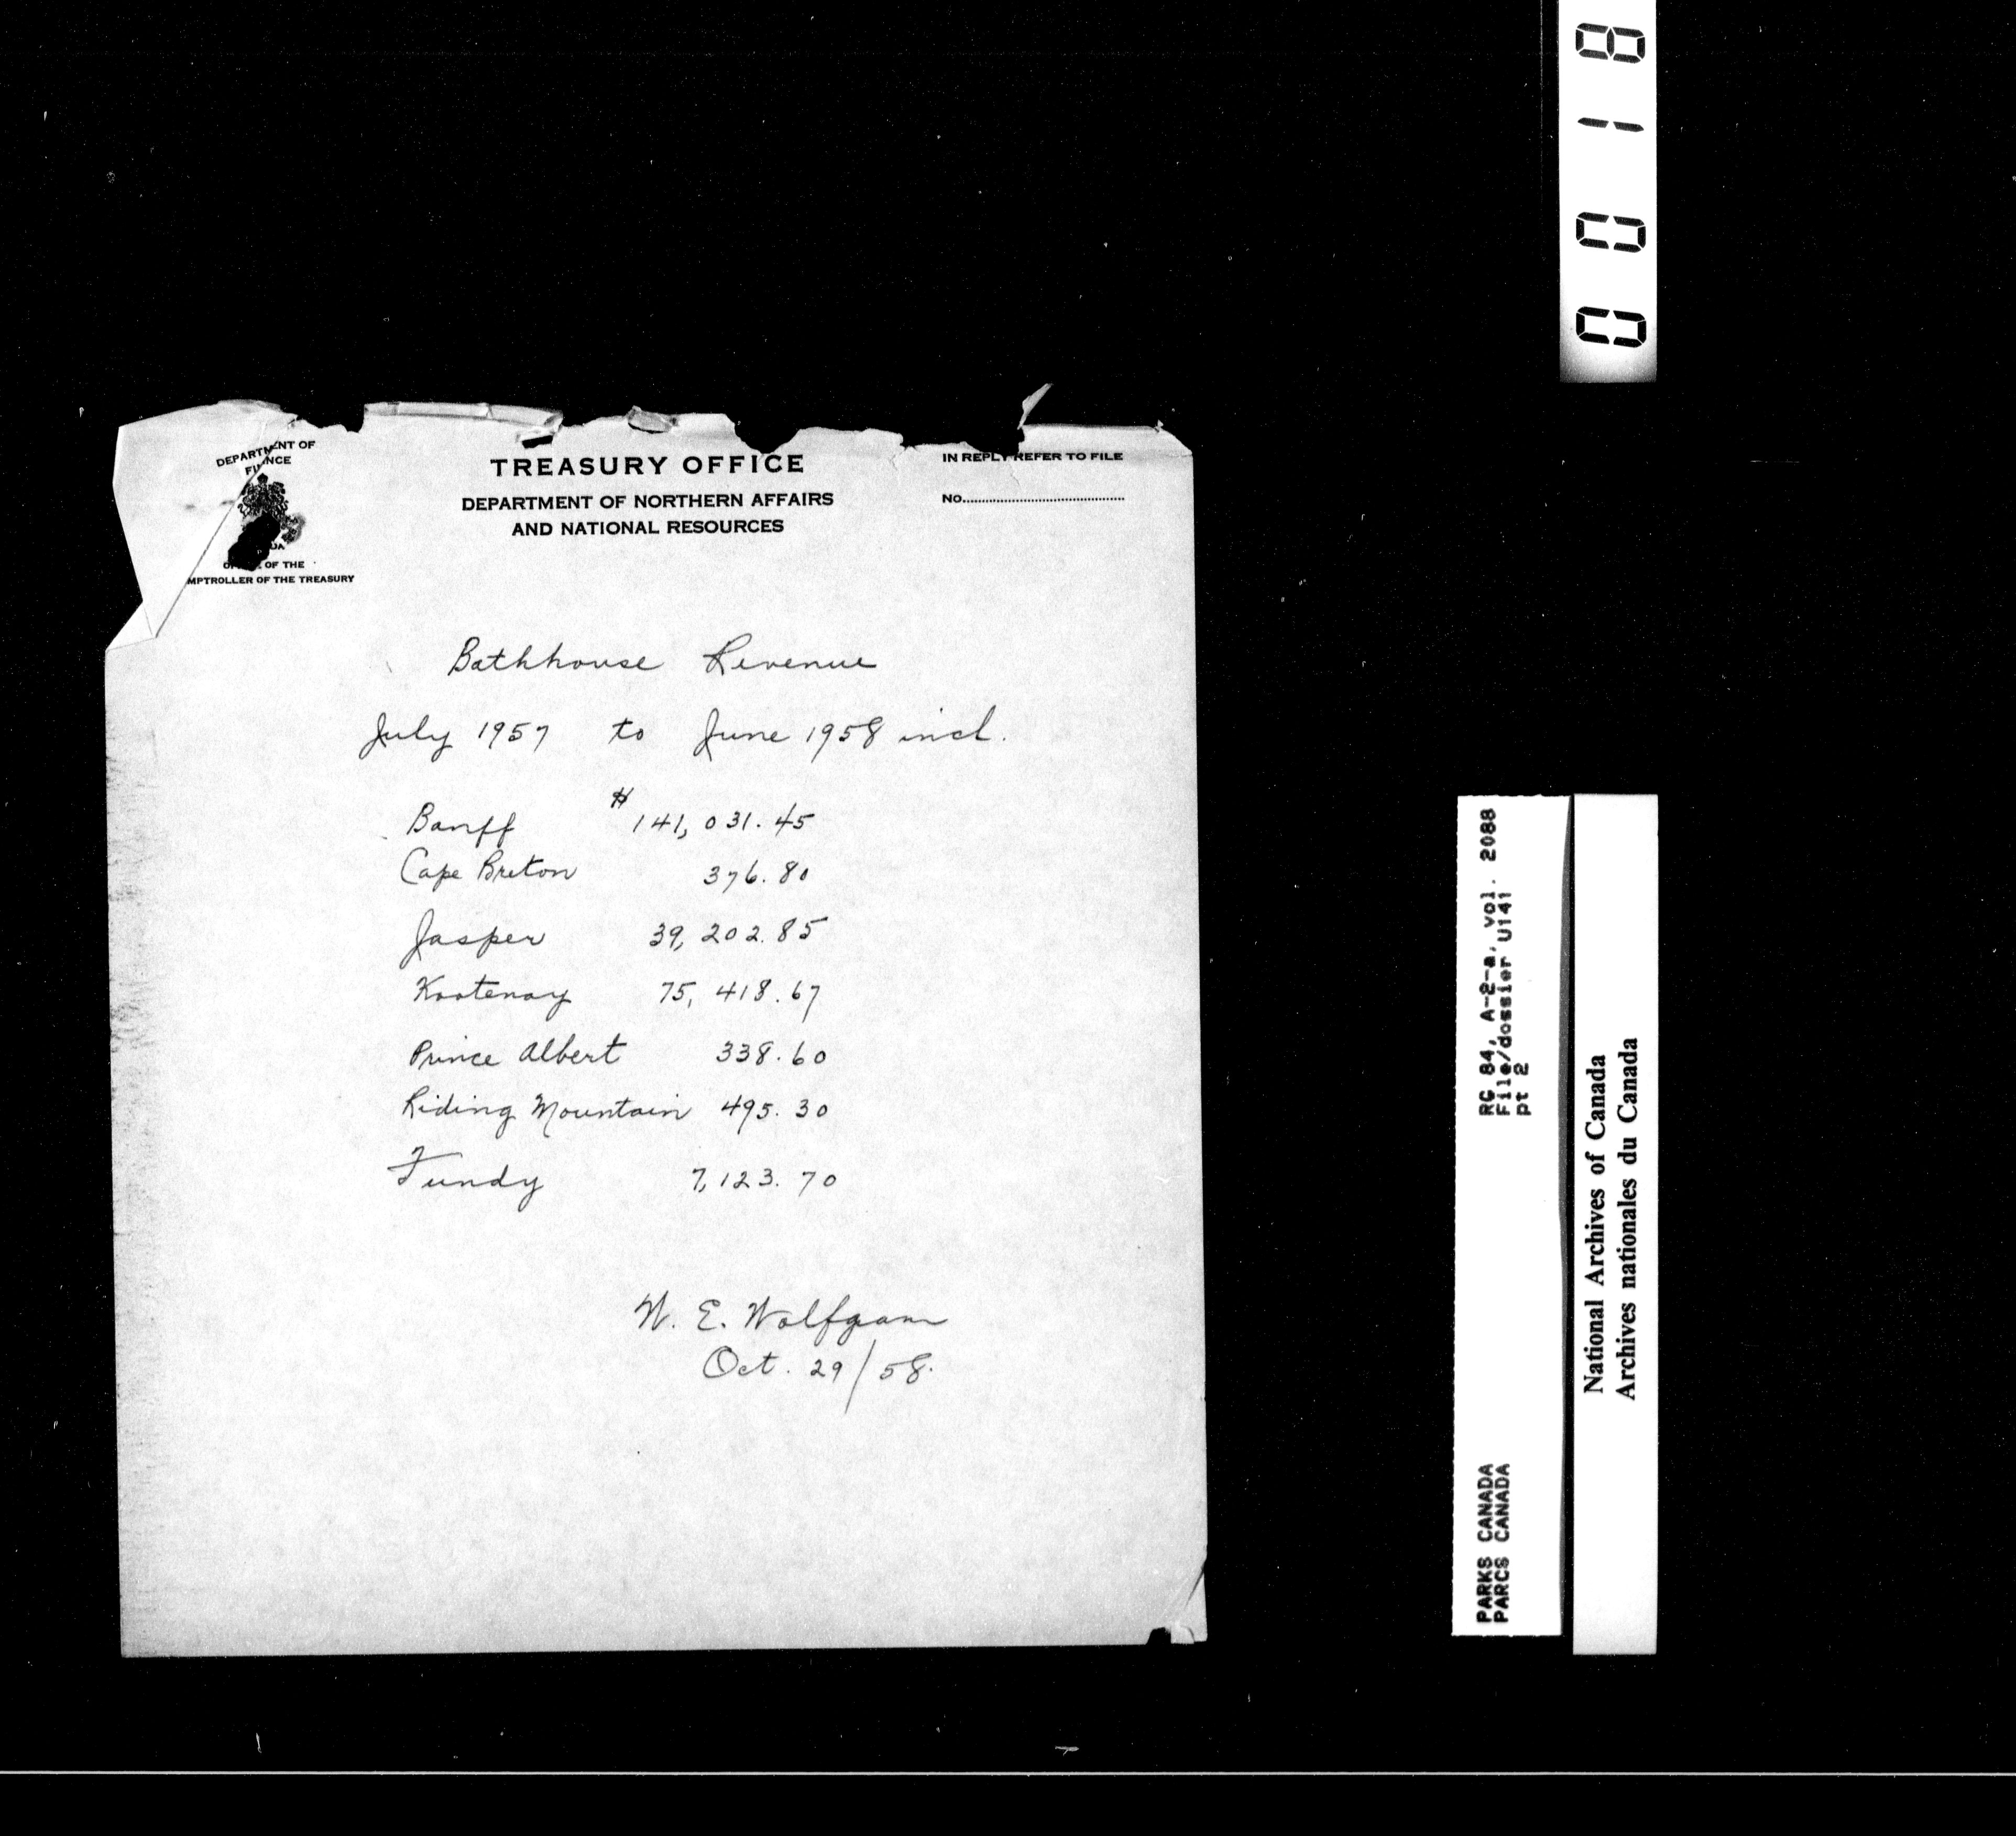 DEPARTMENT OF
FINANCE
OF THE
MPTROLLER OF THE TREASURY
TREASURY OFFICE
DEPARTMENT OF NORTHERN AFFAIRS
AND NATIONAL RESOURCES
IN REPLY REFER TO FILE
No.
Bathhouse Revenue
July 1957 to June 1958 incl.
Banff $ 141,031.45
Cape Breton 376.80
Jasper 39,202.85
Kootenay 75,418.67
Prince Albert 338.60
Riding Mountain 495.30
Fundy 7,123.70
W. E. Wolfgram
Oct. 29/58.
0018
RG 84, A-2-a, vol. 2088
File/dossier U141
pt 2
PARKS CANADA
PARCS CANADA
National Archives of Canada
Archives nationales du Canada